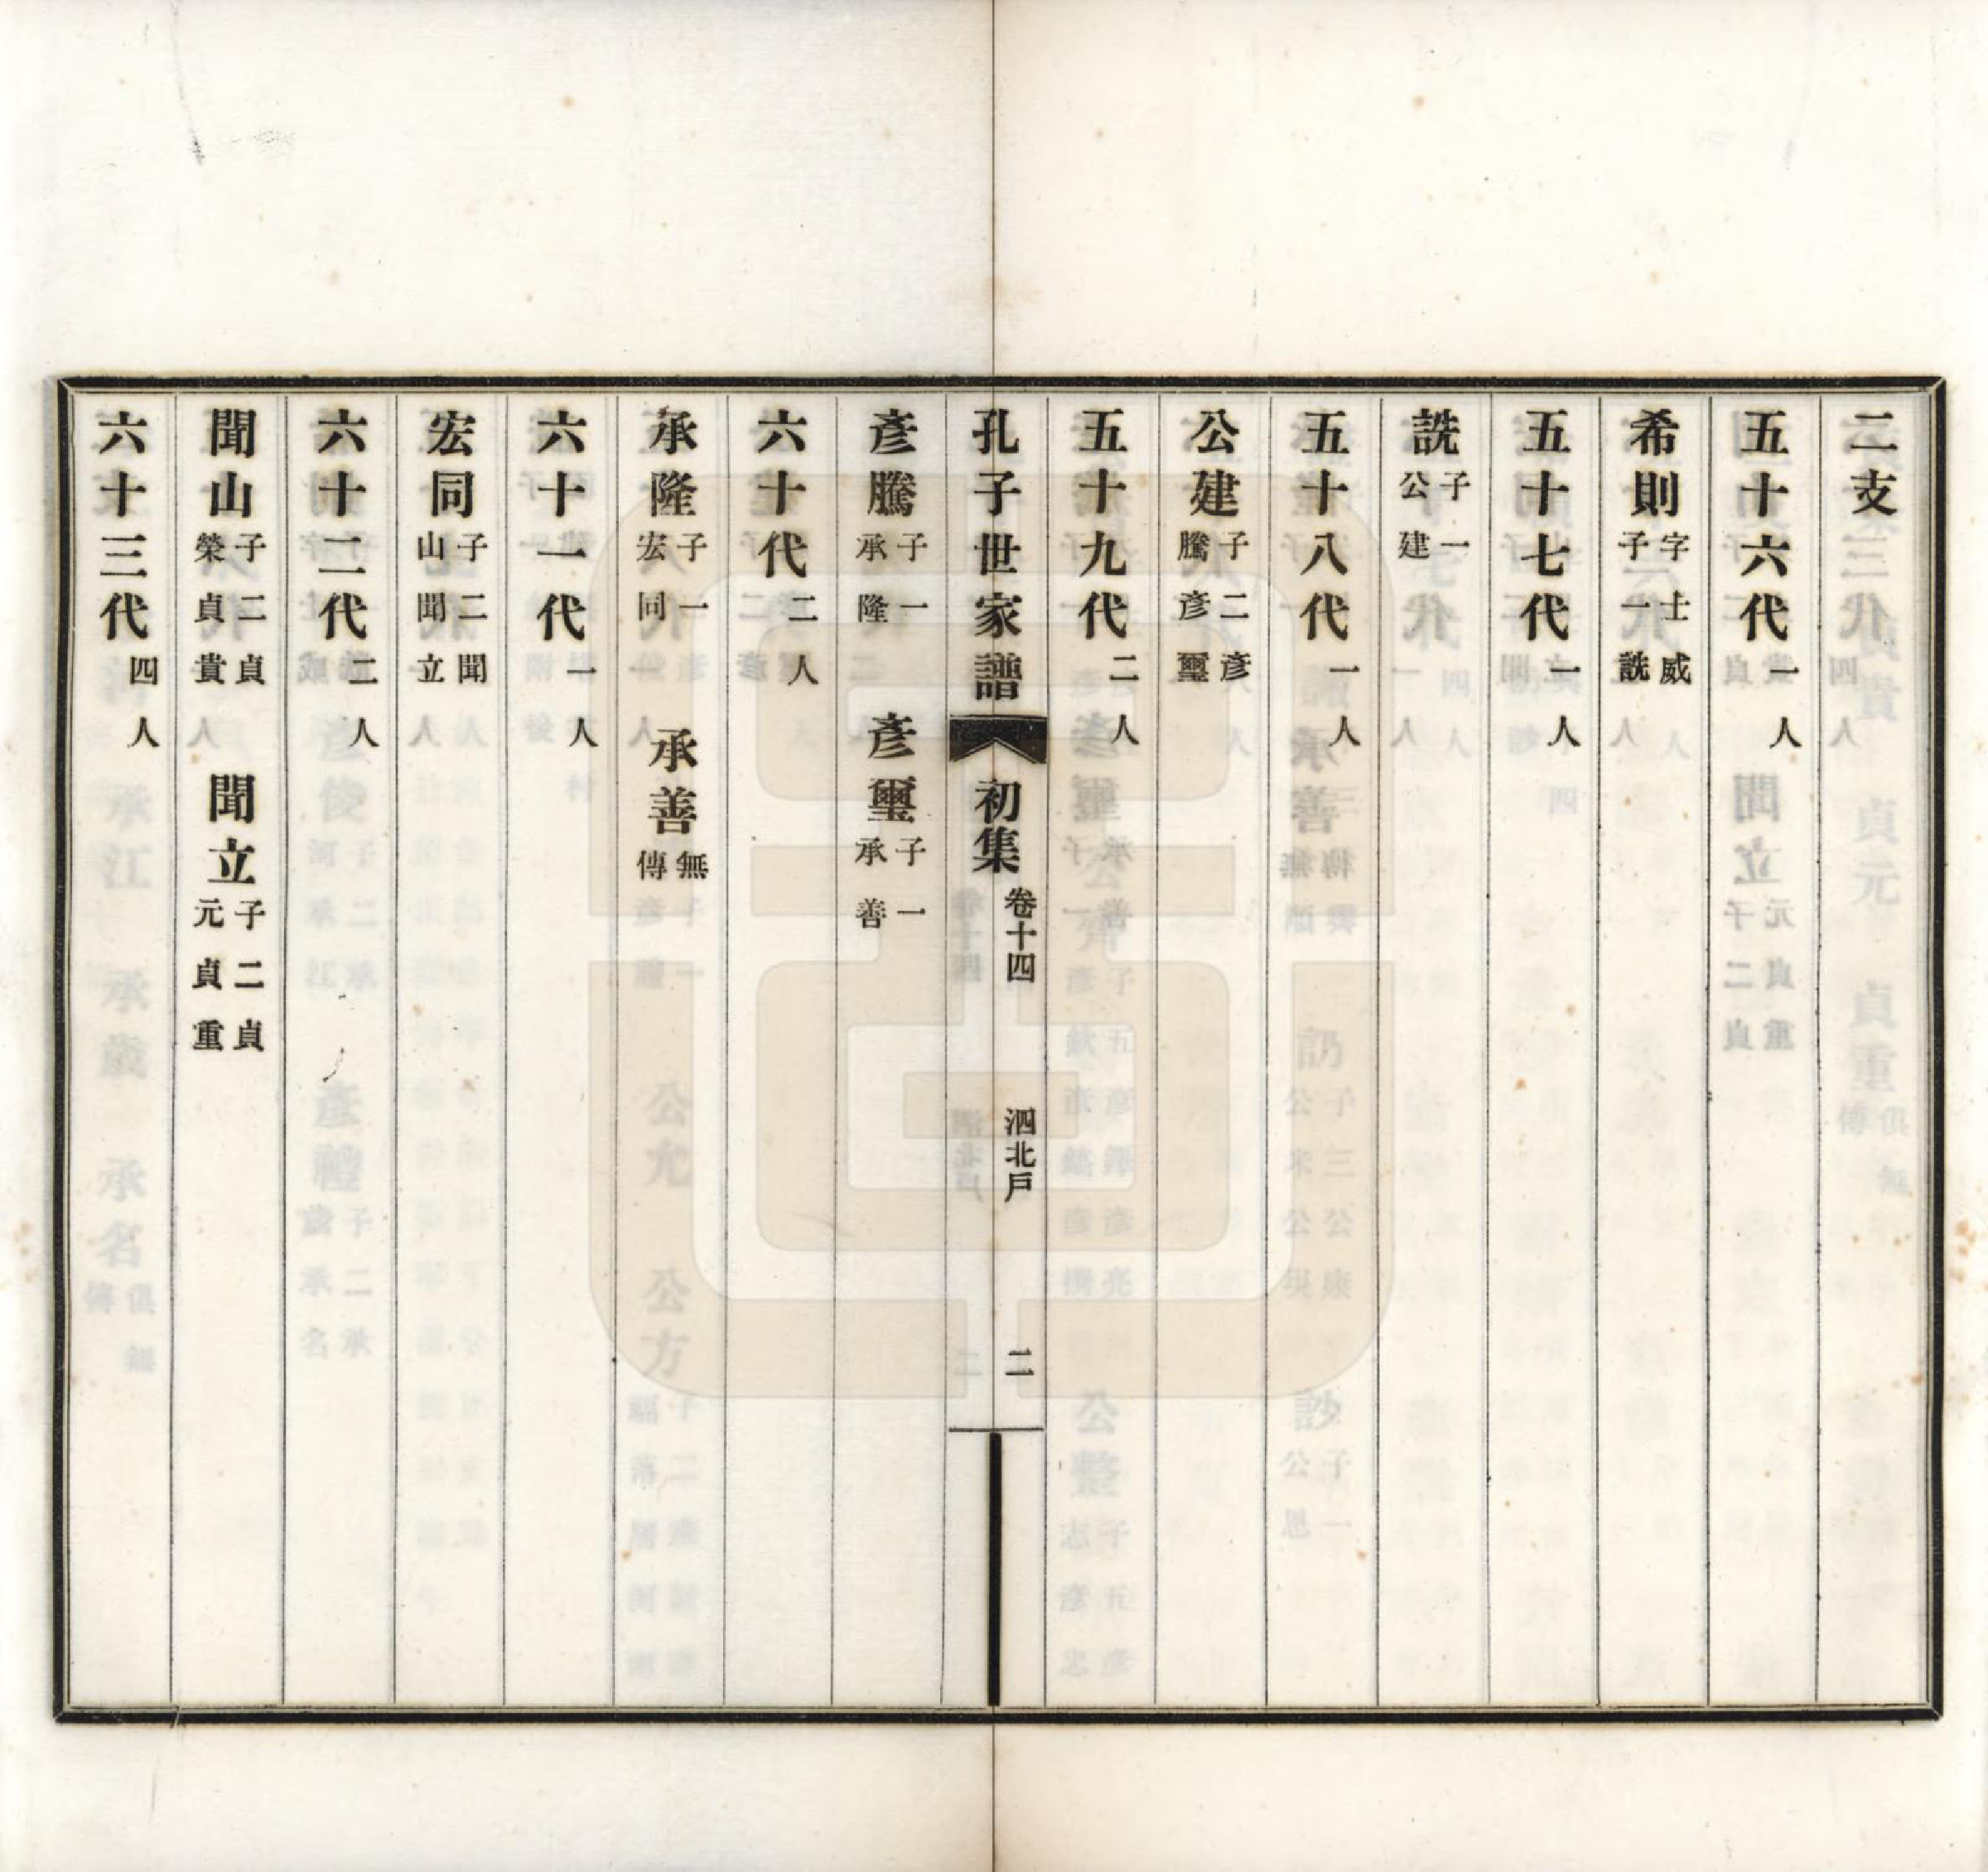 二支
五十六代一人
希則字士威子一詵
五十七代一人
詵子一公建
五十八代一人
公建子二彥騰彥璽
五十九代二人
孔子世家譜 初集 卷十四 泗北戶 二
彥騰子一承隆 彥璽子一承善
六十代二人
承隆子一宏同 承善無傳
六十一代一人
宏同子二聞山聞立
六十二代二人
聞山子二貞榮貞貴 聞立子二貞元貞重
六十三代四人